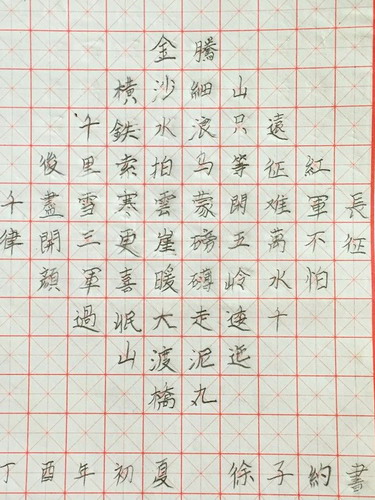 長征
紅軍不怕
遠征难萬水千
山只等閑五岭逶迤
騰細浪马蒙磅礴走泥丸
金沙水拍雲崖暖大渡橋
橫鉄索寒更喜岷山
千里雪三軍過
俊盡開顏
千律
丁酉年初夏 徐子約書